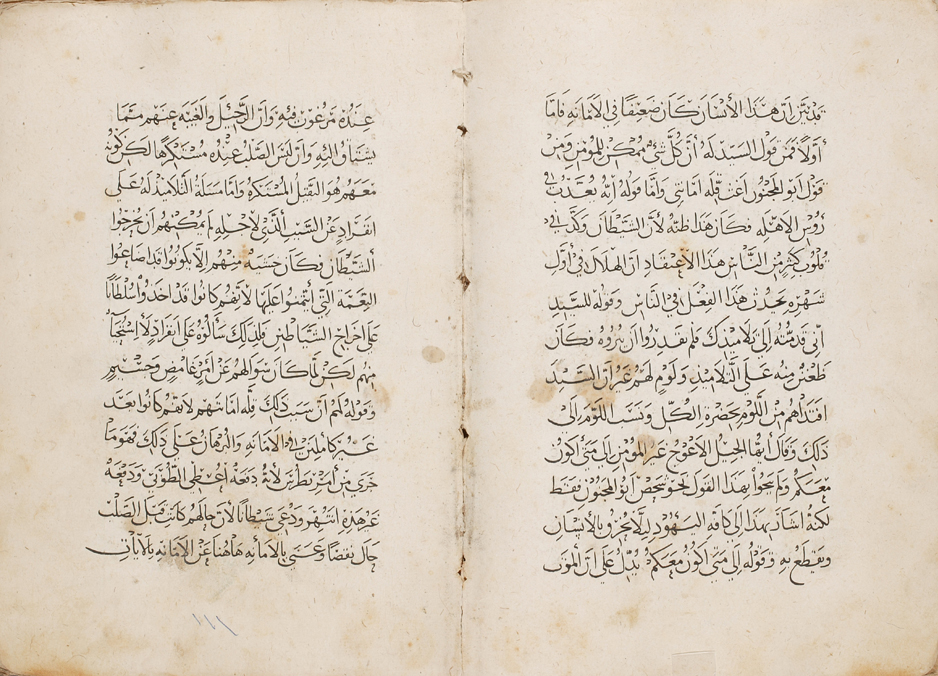 قد بين ان هذا الانسان كان ضعيفا في الامانه فاما
اولا فمن قول السيد له ان كل شي ممكن للمومن ومن
قول ابو المجنون اعن قله امانتي واما قوله انه يعذب في
روس الاهله فكان هذا ظنه لان الشيطان وكد في
قلوب كثير من الناس هذا الاعتقاد ان الهلال في اول
شهره يحدث هذا الفعل في الناس وقوله للسيد
اني قدمته الى تلاميذك فلم يقدروا ان يبروه فكان
طعن منه على التلاميذ ولوم لهم غير ان السيد
افتداهم من اللوم بحضرة الكل ونسب اللوم الى
ذلك وقال ايها الجيل الاعوج غير المومن الى متى اكون
معكم ولم ينحوا بهذا القول نحو شخص ابو المجنون فقط
لكنه اشار بهذا الى كافه اليهود ليلا يحزن بالانسان
ويقطع به وقوله الى متى اكون معكم يدل على ان الموت
عنده مرغوب فيه وان الرحيل والغيبه عنهم مما
يشتاق اليه وان ليس الصلب عنده مستكرها لكن كونه
معهم هو الثقيل المستكره واما مسلة التلاميذ له على
انفراد عن السبب الذي لاجله لم يمكنهم ان يخرجوا
الشيطان فكان خشيه منهم الا يكونوا قد اضاعوا
النعمة التي ايتمنوا عليها لانهم كانوا قد اخذوا سلطانا
على اخراج الشياطين فلذلك سالوه على انفراد لا استحيا
منهم لكن لما كان سوالهم عن امر غامض وجسيم
وقوله لهم ان سبب ذلك قله امانتهم لانهم كانوا بعد
غير كاملين في الامانه والبرهان على ذلك فهو ما
جرى من امر بطرس لانه دفعة اعطي الطوبى ودفعة
غير هذه انتهر ودعي شيطانا لان حالهم كانت قبل الصلب
حال نقص وعنى بالامانه هاهنا عن الامانه بالايات
١١١